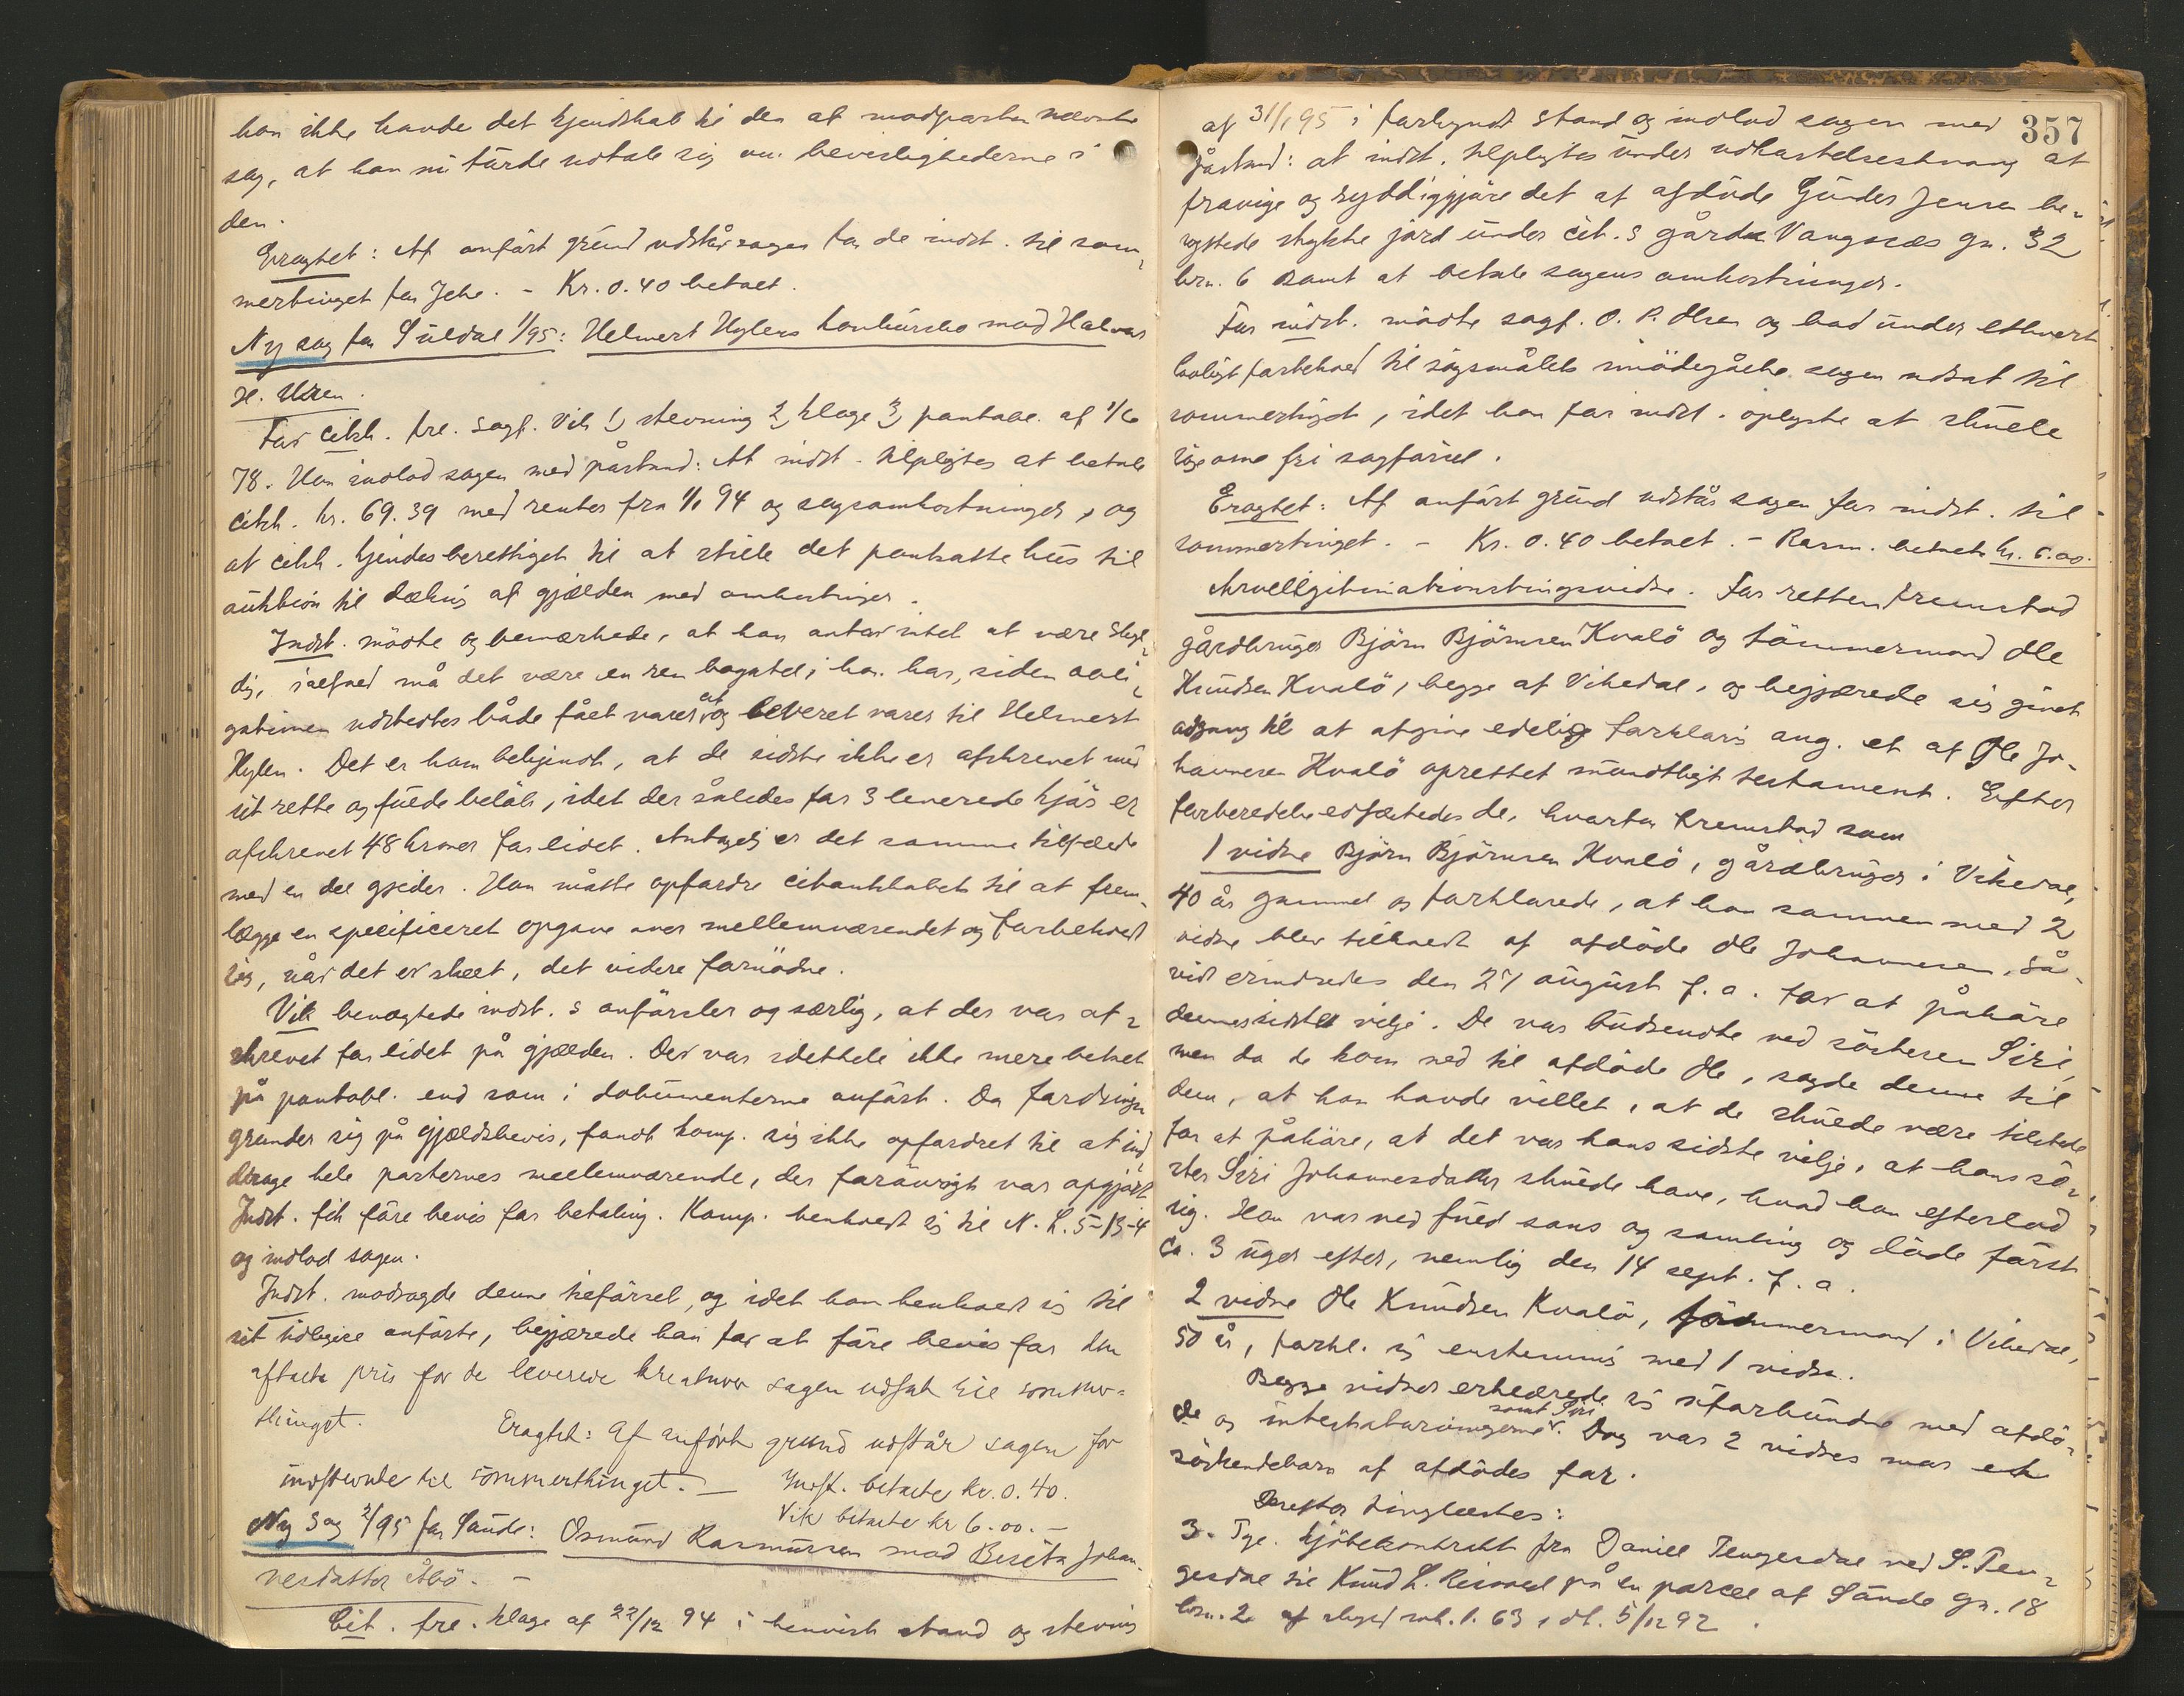 han ikke havde det kjendskab til den af modparten nævnte
sag, at han nu turde udtale sig om bevisligheder i
den.
Eragtet: Af anført grund udstår sagen for de indst. til som-
mertinget for Jelse. - Kr. 0.40 betalt.
Ny sag for Suldal 1/95: Helmert Hylens konkursbo mod Halvor
H. Uren.
For citch. fre. sagf. Vik 1) stevning 2) klage 3) pantobl. af 1/6
78. Han indlod sagen med påstand: At indst. tilpligtes at betale
citch. kr. 69.39 med renter fra 1/1 94 og sagsomkostninger, og
at citch. kjendes berettiget til at stille det pantsatte hus til
auktion til dækning af gjælden med omkostninger.
Indst. mødte og bemærkede, at han antar intet at være skyl-
dig, ialfald må det være en ren bagatel; han har, siden obli-
gationen udstedtes både fået varer af og leveret varer til Helmert
Hylen. Det er ham bekjendt, at de sidste ikke er afskrevet med
sit rette og fulde beløb, idet der således for 3 leverede kjør er
afskrevet 48 kroner for lidet. Antagelig er det samme tilfælde
med en del gjeder. Han måtte opfordre citantskabet til at frem-
lægge en specificeret opgave over mellemværendet og forbeholdt
sig, når det er skeet, det videre fornødne.
Vik benegtede indst.s anførsler og særlig, at der var af-
skrevet for lidet på gjælden. Der var idethele ikke mere betalt
på pantobl. end som i dokumenterne anført. Da fordringen
grunder sig på gjældsbevis, fandt komp. sig ikke opfordret til at ind
drage hele parternes mellemværende, der forøvrigt var opgjort
Indst. fik føre bevis for betaling. Komp. henholdt sig til N. L. 5-13-4
og indlod sagen.
Indst. modsagde denne tilførsel, og idet han henholdt sig til
sit tidligere anførte, begjærede han for at føre bevis for den
aftalte pris for de leverede kreaturer sagen udsat til sommer-
thinget.
Eragtet: Af anført grund udstår sagen for
indstevnte til sommerthinget. — Indst. betalte kr. 0.40.
Vik betalte kr 6.00. —
Ny sag 2/95 for Sande: Osmund Rasmussen mod Berita Johan-
nesdatter Åbø. —
Cit. fre. klage af 22/12 94 i henvist stand og stevning
357
af 31/1 95 i forkyndt stand og indlod sagen med
påstand: at indst. tilpligtes under udkastelsestvang at
fravige og ryddiggjøre det af afdøde Gunder Jensen be-
nyttede stykke jord under cit.s gård Vangsnes gn. 32
brn. 6 samt at betale sagens omkostninger.
For indst. mødte sagf. O. P. Olsen og bad under ethvert
lovligt forbehold til søgsmålets imødegåelse sagen udsat til
sommertinget, idet han for indst. oplyste at skulle
søge om fri sagførsel.
Eragtet: Af anført grund udstår sagen for indst. til
sommertinget. - Kr. 0.40 betalt. - Rasm. betalte kr. 6.00.
Arvelegitimationstingsvidne. For retten fremstod
gårdbruger Bjørn Bjørnsen Kvalø og tømmermand Ole
Knudsen Kvalø, begge af Vikedal, og begjærede sig givet
adgang til at afgive edelig forklaring ang. et af Ole Jo-
hannesen Kvalø oprettet mundtligt testament. Efter
forberedelse edfæstedes de, hvorfor fremstod som
1 vidne Bjørn Bjørnsen Kvalø, gårdbruger i Vikedal,
40 år gammel og forklarede, at han sammen med 2
vidne blev tilkaldt af afdøde Ole Johannesen, så-
vidt erindredes den 27 august f. a. for at påhøre
dennes sidste vilje. De var budsendte ved søsteren Siri,
men da de kom ned til afdøde Ole, sagde denne til
dem, at han havde villet, at de skulde være tilstede
for at påhøre, at det var hans sidste vilje, at hans sø-
ster Siri Johannesdatter skulde have, hvad han efterlod
sig. Han var ved fuld sans og samling og døde først
ca. 3 uger efter, nemlig den 14 sept. f. a.
2 vidne Ole Knudsen Kvalø, tømmermand i Vikedal,
50 år, forkl. sig enstemmig med 1 vidne.
Begge vidner erklærede sig uforbundne med afdø-
de og intestatarvingerne samt Siri. Dog var 2 vidnes mor et
søskendebarn af afdødes far.
Derefter tinglæstes:
3. Tge. kjøbekontrakt fra Daniel Tengesdal ved S. Ten-
gesdal til Knud L. Risvold på en parcel af Sande gn. 18
brn. 2 af skyld mk. 1.63, dt. 5/12 92.